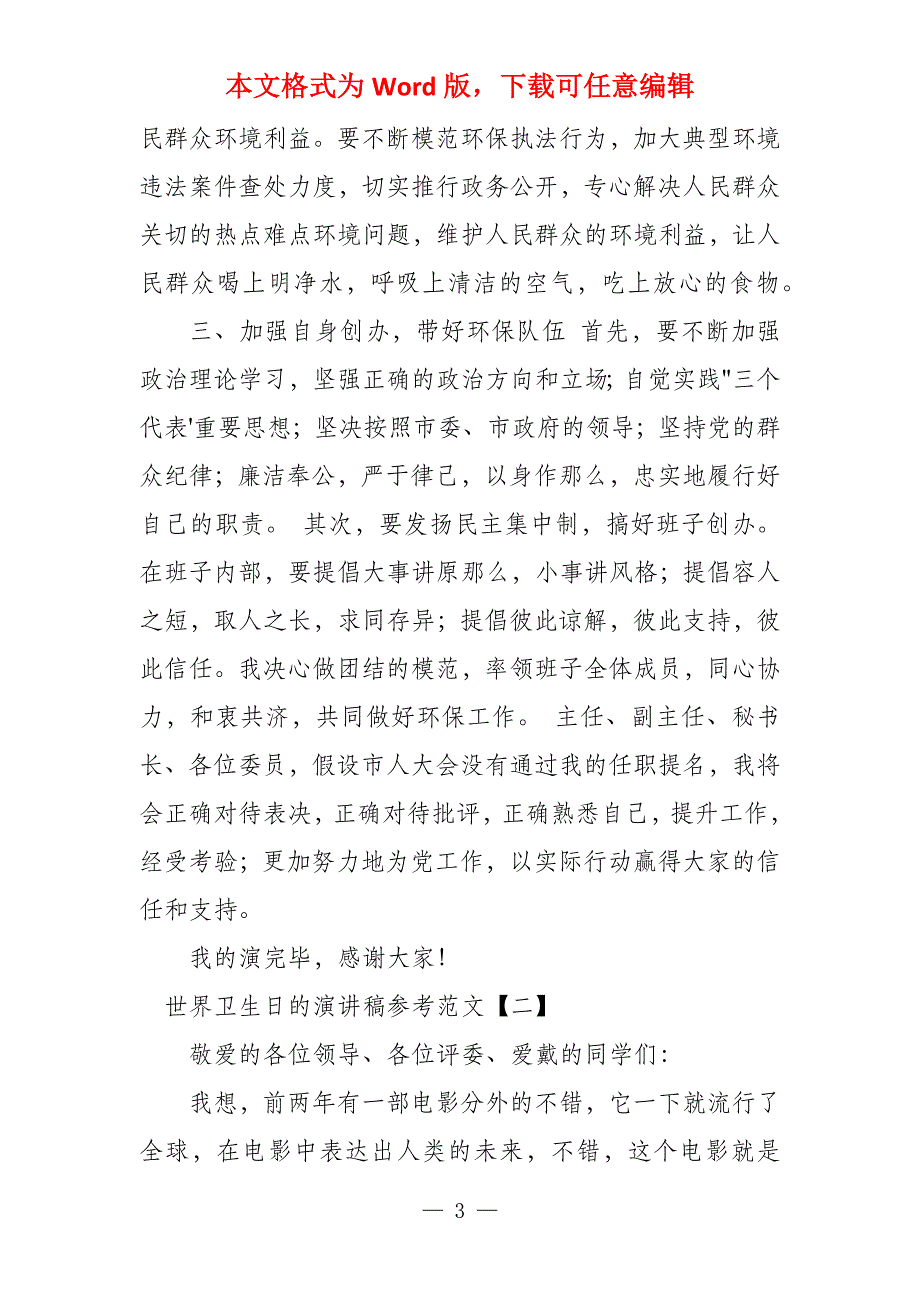 本文格式为 Word 版，下载可任意编辑
民群众环境利益。要不断模范环保执法行为，加大典型环境
违法案件查处力度，切实推行政务公开，专心解决人民群众
关切的热点难点环境问题，维护人民群众的环境利益，让人
民群众喝上明净水，呼吸上清洁的空气，吃上放心的食物。
三、加强自身创办，带好环保队伍 首先，要不断加强
政治理论学习，坚强正确的政治方向和立场；自觉实践"三个
代表'重要思想；坚决按照市委、市政府的领导；坚持党的群
众纪律；廉洁奉公，严于律己，以身作那么，忠实地履行好
自己的职责。 其次，要发扬民主集中制，搞好班子创办。
在班子内部，要提倡大事讲原那么，小事讲风格；提倡容人
之短，取人之长，求同存异；提倡彼此谅解，彼此支持，彼
此信任。我决心做团结的模范，率领班子全体成员，同心协
力，和衷共济，共同做好环保工作。 主任、副主任、秘书
长、各位委员，假设市人大会没有通过我的任职提名，我将
会正确对待表决，正确对待批评，正确熟悉自己，提升工作，
经受考验；更加努力地为党工作，以实际行动赢得大家的信
任和支持。
我的演完毕，感谢大家！
世界卫生日的演讲稿参考范文【二】
敬爱的各位领导、各位评委、爱戴的同学们：
我想，前两年有一部电影分外的不错，它一下就流行了
全球，在电影中表达出人类的未来，不错，这个电影就是
— 3 —